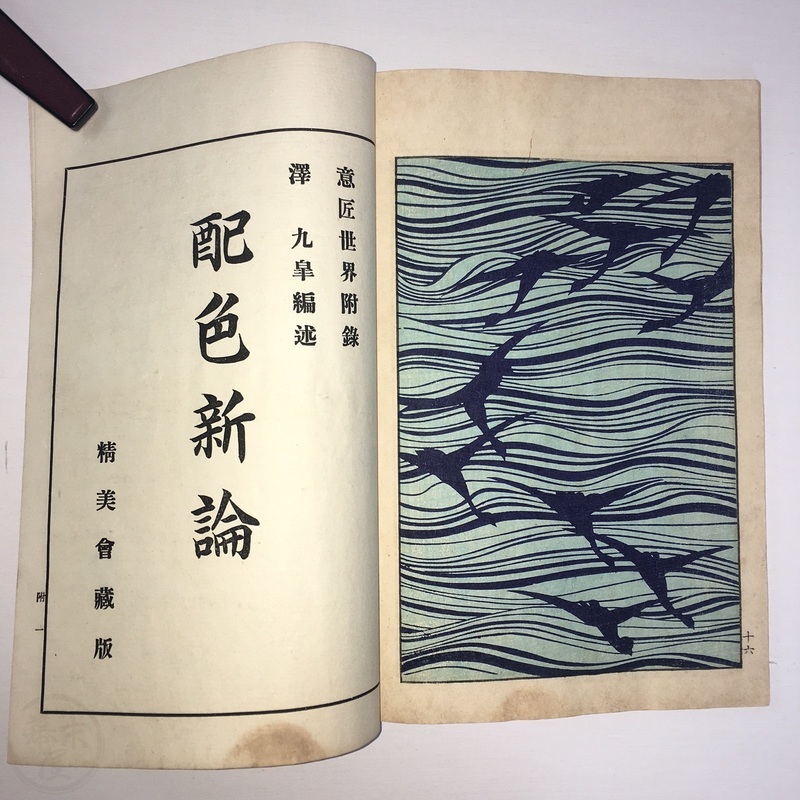 意匠世界附錄
澤 九皐編述
配色新論
精美會藏版
附 一
十六